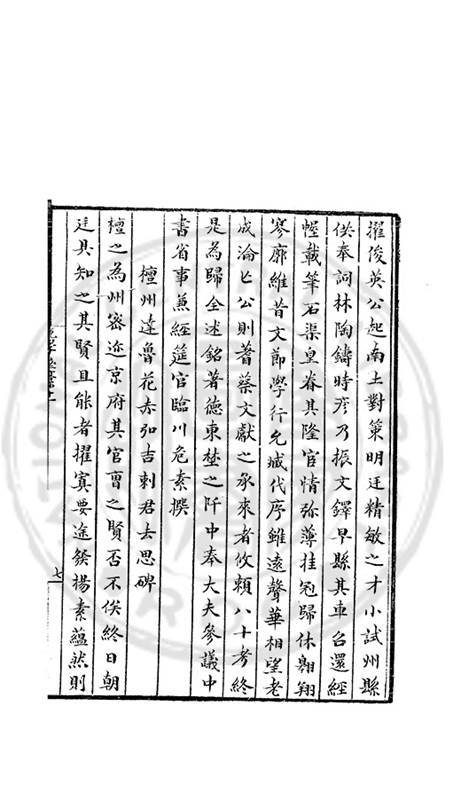 擢俊英公起南土對策明廷精敏之才小試州縣
供奉詞林陶鑄時彦乃振文鐸早縣其車召還經
幄載筆石渠皇眷其隆宦情弥薄挂冠歸休翺翔
寥廓維昔文節學行允臧代序雖遠聲華相望老
成淪亡公則蓍蔡文獻之承來者攸賴八十考終
是為歸全述銘著德東埜之阡中奉大夫參議中
書省事兼經筵官臨川危素撰
檀州達魯花赤弘吉剌君去思碑
檀之為州密迩京府其官曺之賢否不俟終日朝
廷具知之其賢且能者擢寘要途發揚素蘊然則
七